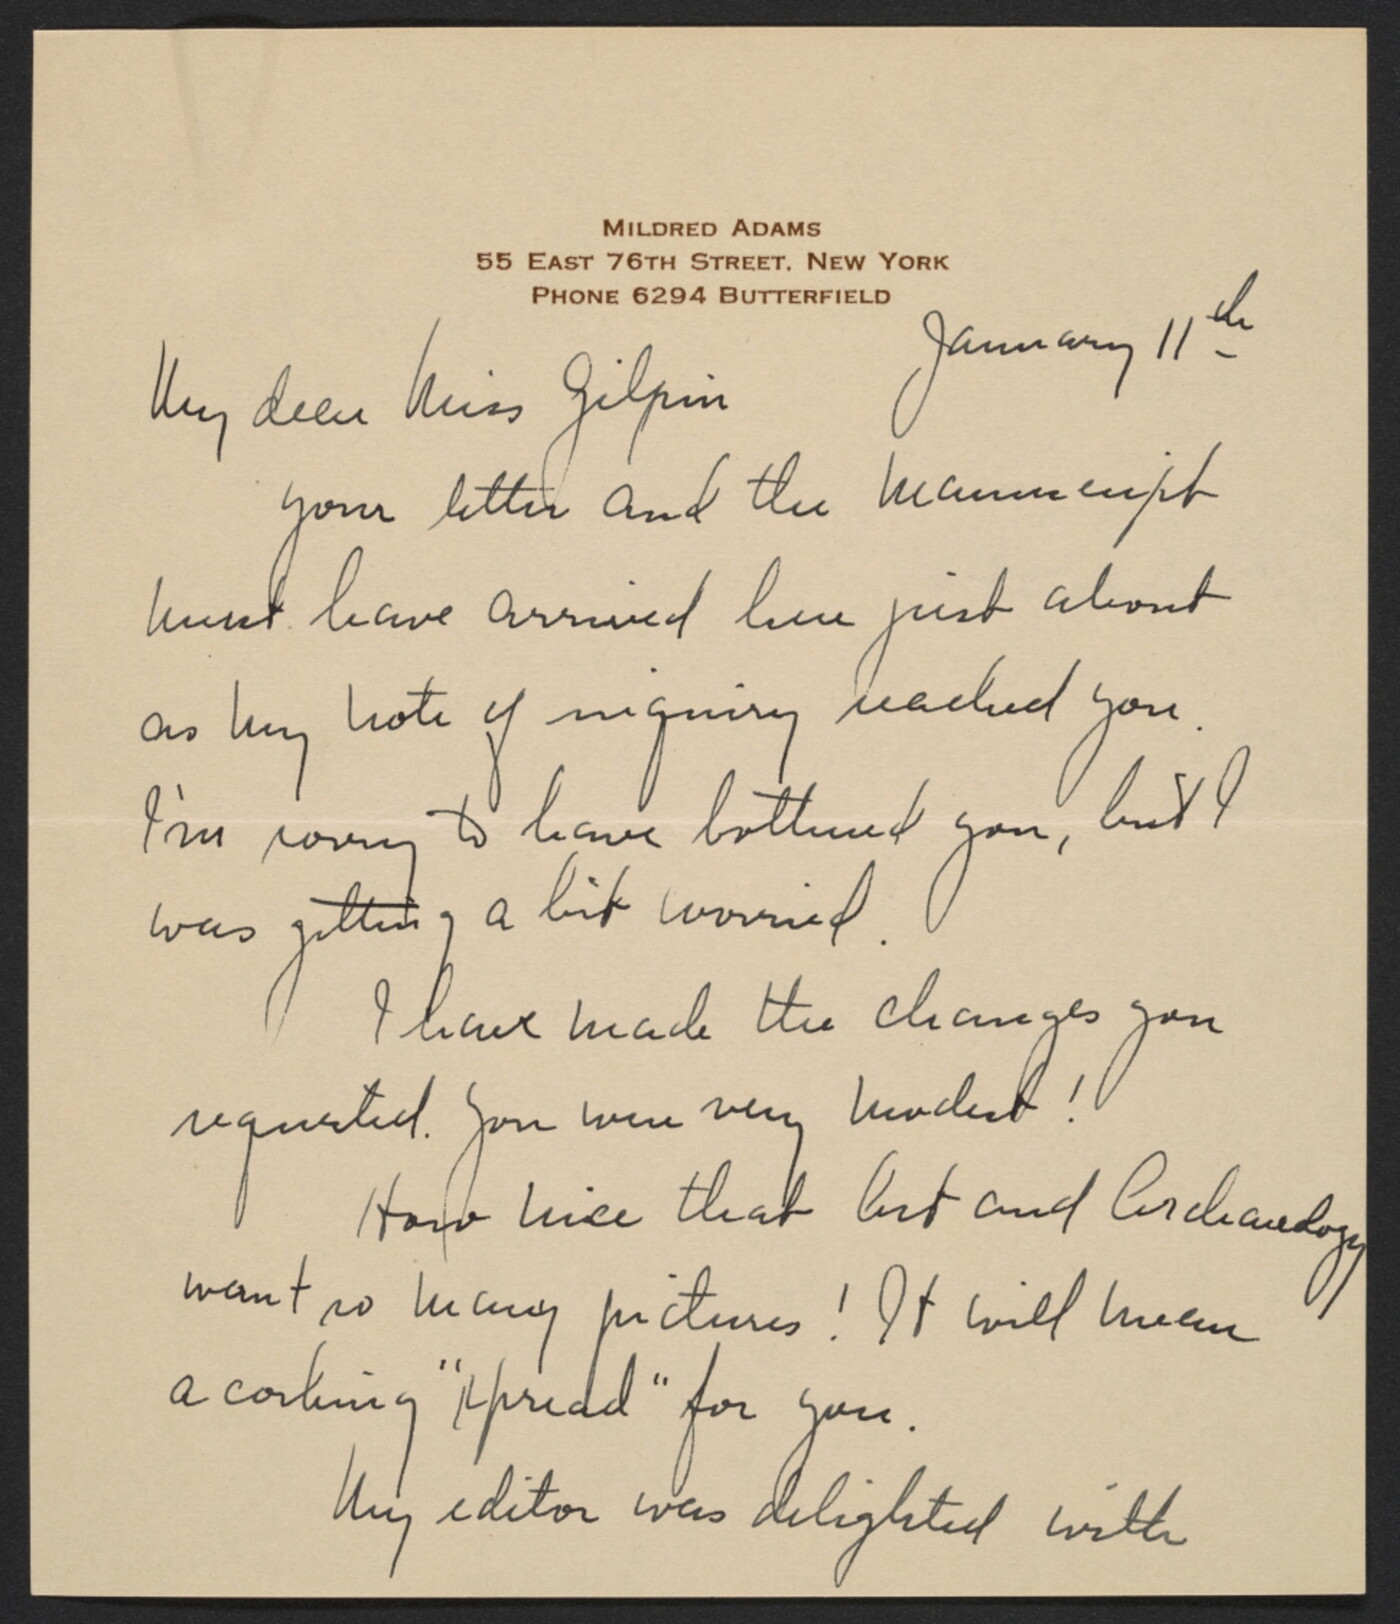 MILDRED ADAMS
55 EAST 76TH STREET. NEW YORK
PHONE 6294 BUTTERFIELD
January 11th
My dear Miss Gilpin
your letter and the manuscript
must have arrived here just about
as my note of inquiry reached you.
I'm sorry to have bothered you, but I
was getting a bit worried.
I have made the changes you
requested. You were very modest!
How nice that Art and Archaeology
want so many pictures! It will mean
a corking "spread" for you.
My editor was delighted with